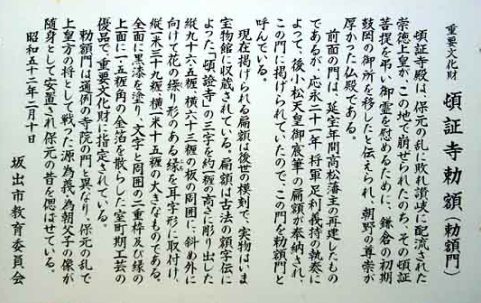 重要文化財 頓証寺勅額（勅額門）
頓証寺殿は、保元の乱に敗れ讃岐に配流された
崇徳上皇が、この地で崩ぜられたのち、その頓証
菩提を弔い御霊を慰めるために、鎌倉の初期
鼓岡の御所を移したと伝えられ、朝野の尊崇が
厚かった仏殿である。
前面の門は、延宝年間高松藩主の再建したもの
であるが、応永二十一年将軍足利義持の執奏に
よって、後小松天皇御宸筆の扁額が奉納され、
この門に掲げられていたので、この門を勅額門と
呼んでいる。
現在掲げられる扁額は後世の模刻で、実物はいま
宝物館に収蔵されている。扁額は古法の額字伝に
よった「頓證寺」の三字を約一糎の高さに彫り出した
縦九十六・五糎、横六十三糎の板の周囲に、斜め外に
向けて花の繰り形のある縁を耳字形に取付け、
縦一米三十九糎、横一米十五糎の大きなものである。
全面に黒漆を塗り、文字と周囲の二重枠及び縁の
上面に一・五糎角の金箔を散らした室町期工芸の
優品で、重要文化財に指定されている。
勅額門は通例の寺院の門と異なり、保元の乱で
上皇方の将として戦った源為義、為朝父子の像が
随身として安置され、保元の昔を偲ばせている。
昭和五十二年二月十日
坂出市教育委員会